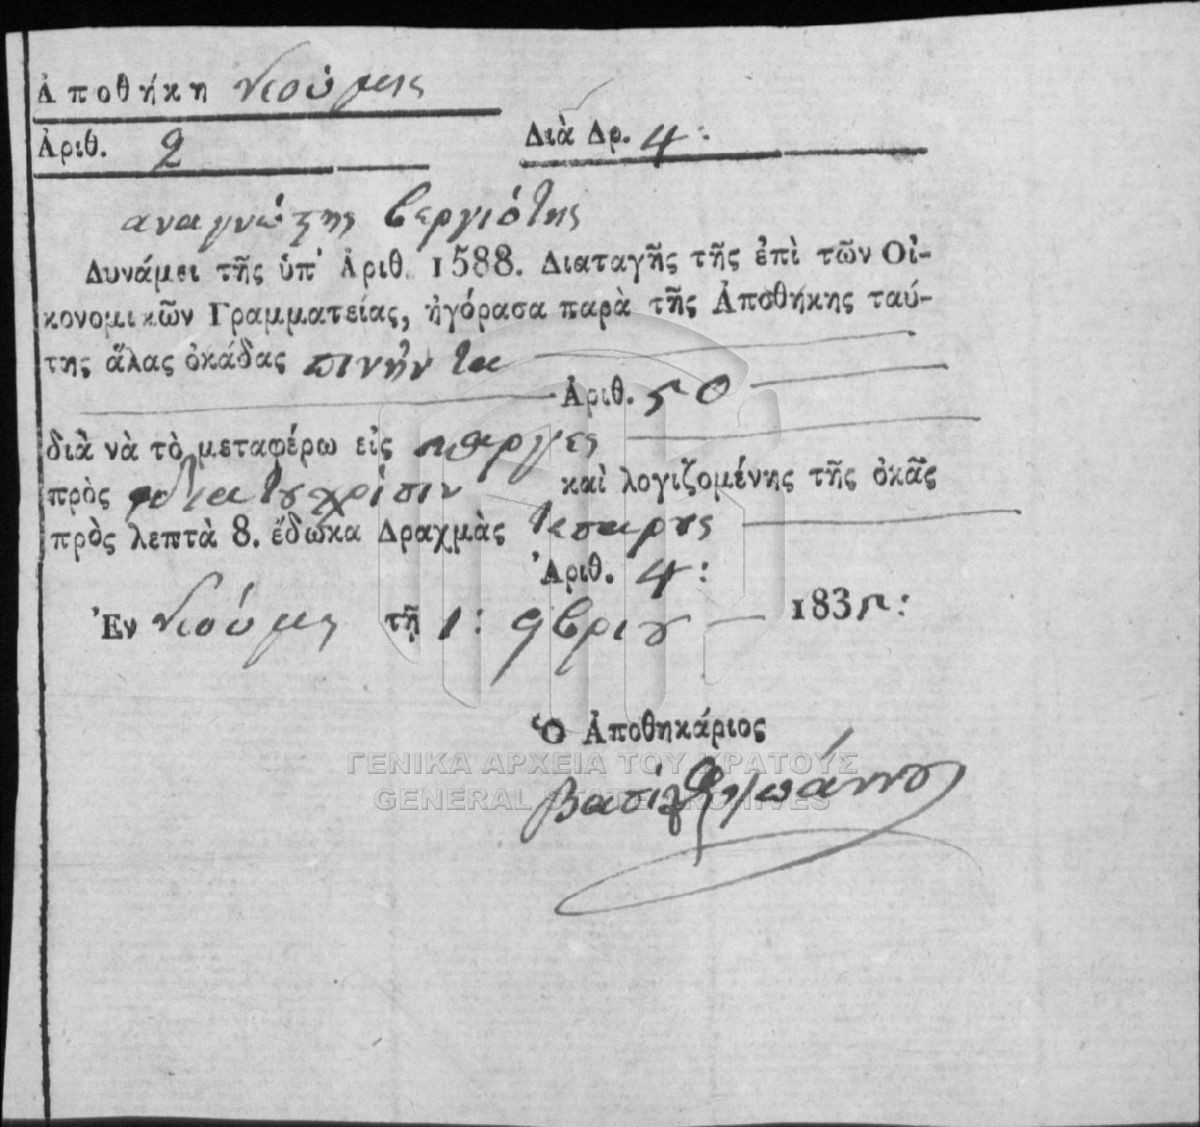 Ἀποθήκη νιούμης
Ἀριθ. 2 Διὰ Δρ. 4:
αναγνώστης βεργιότης
Δυνάμει τῆς ὑπ' Ἀριθ. 1588. Διαταγῆς τῆς ἐπὶ τῶν Οἰ-
κονομικῶν Γραμματείας, ἠγόρασα παρὰ τῆς Ἀποθήκης ταύ-
της ἅλας ὀκάδας πινήντα
Ἀριθ. 50
διὰ νὰ τὸ μεταφέρω εἰς
πρὸς χρίσιν καὶ λογιζομένης τῆς ὀκᾶς
πρὸς λεπτὰ 8. ἔδωκα Δραχμὰς τεσαρας
Ἀριθ. 4:
Ἐν νιούμης τῇ 1: 9βρίου 183
Ὁ Ἀποθηκάριος
ΓΕΝΙΚΑ ΑΡΧΕΙΑ ΤΟΥ ΚΡΑΤΟΥΣ
GENERAL STATE ARCHIVES